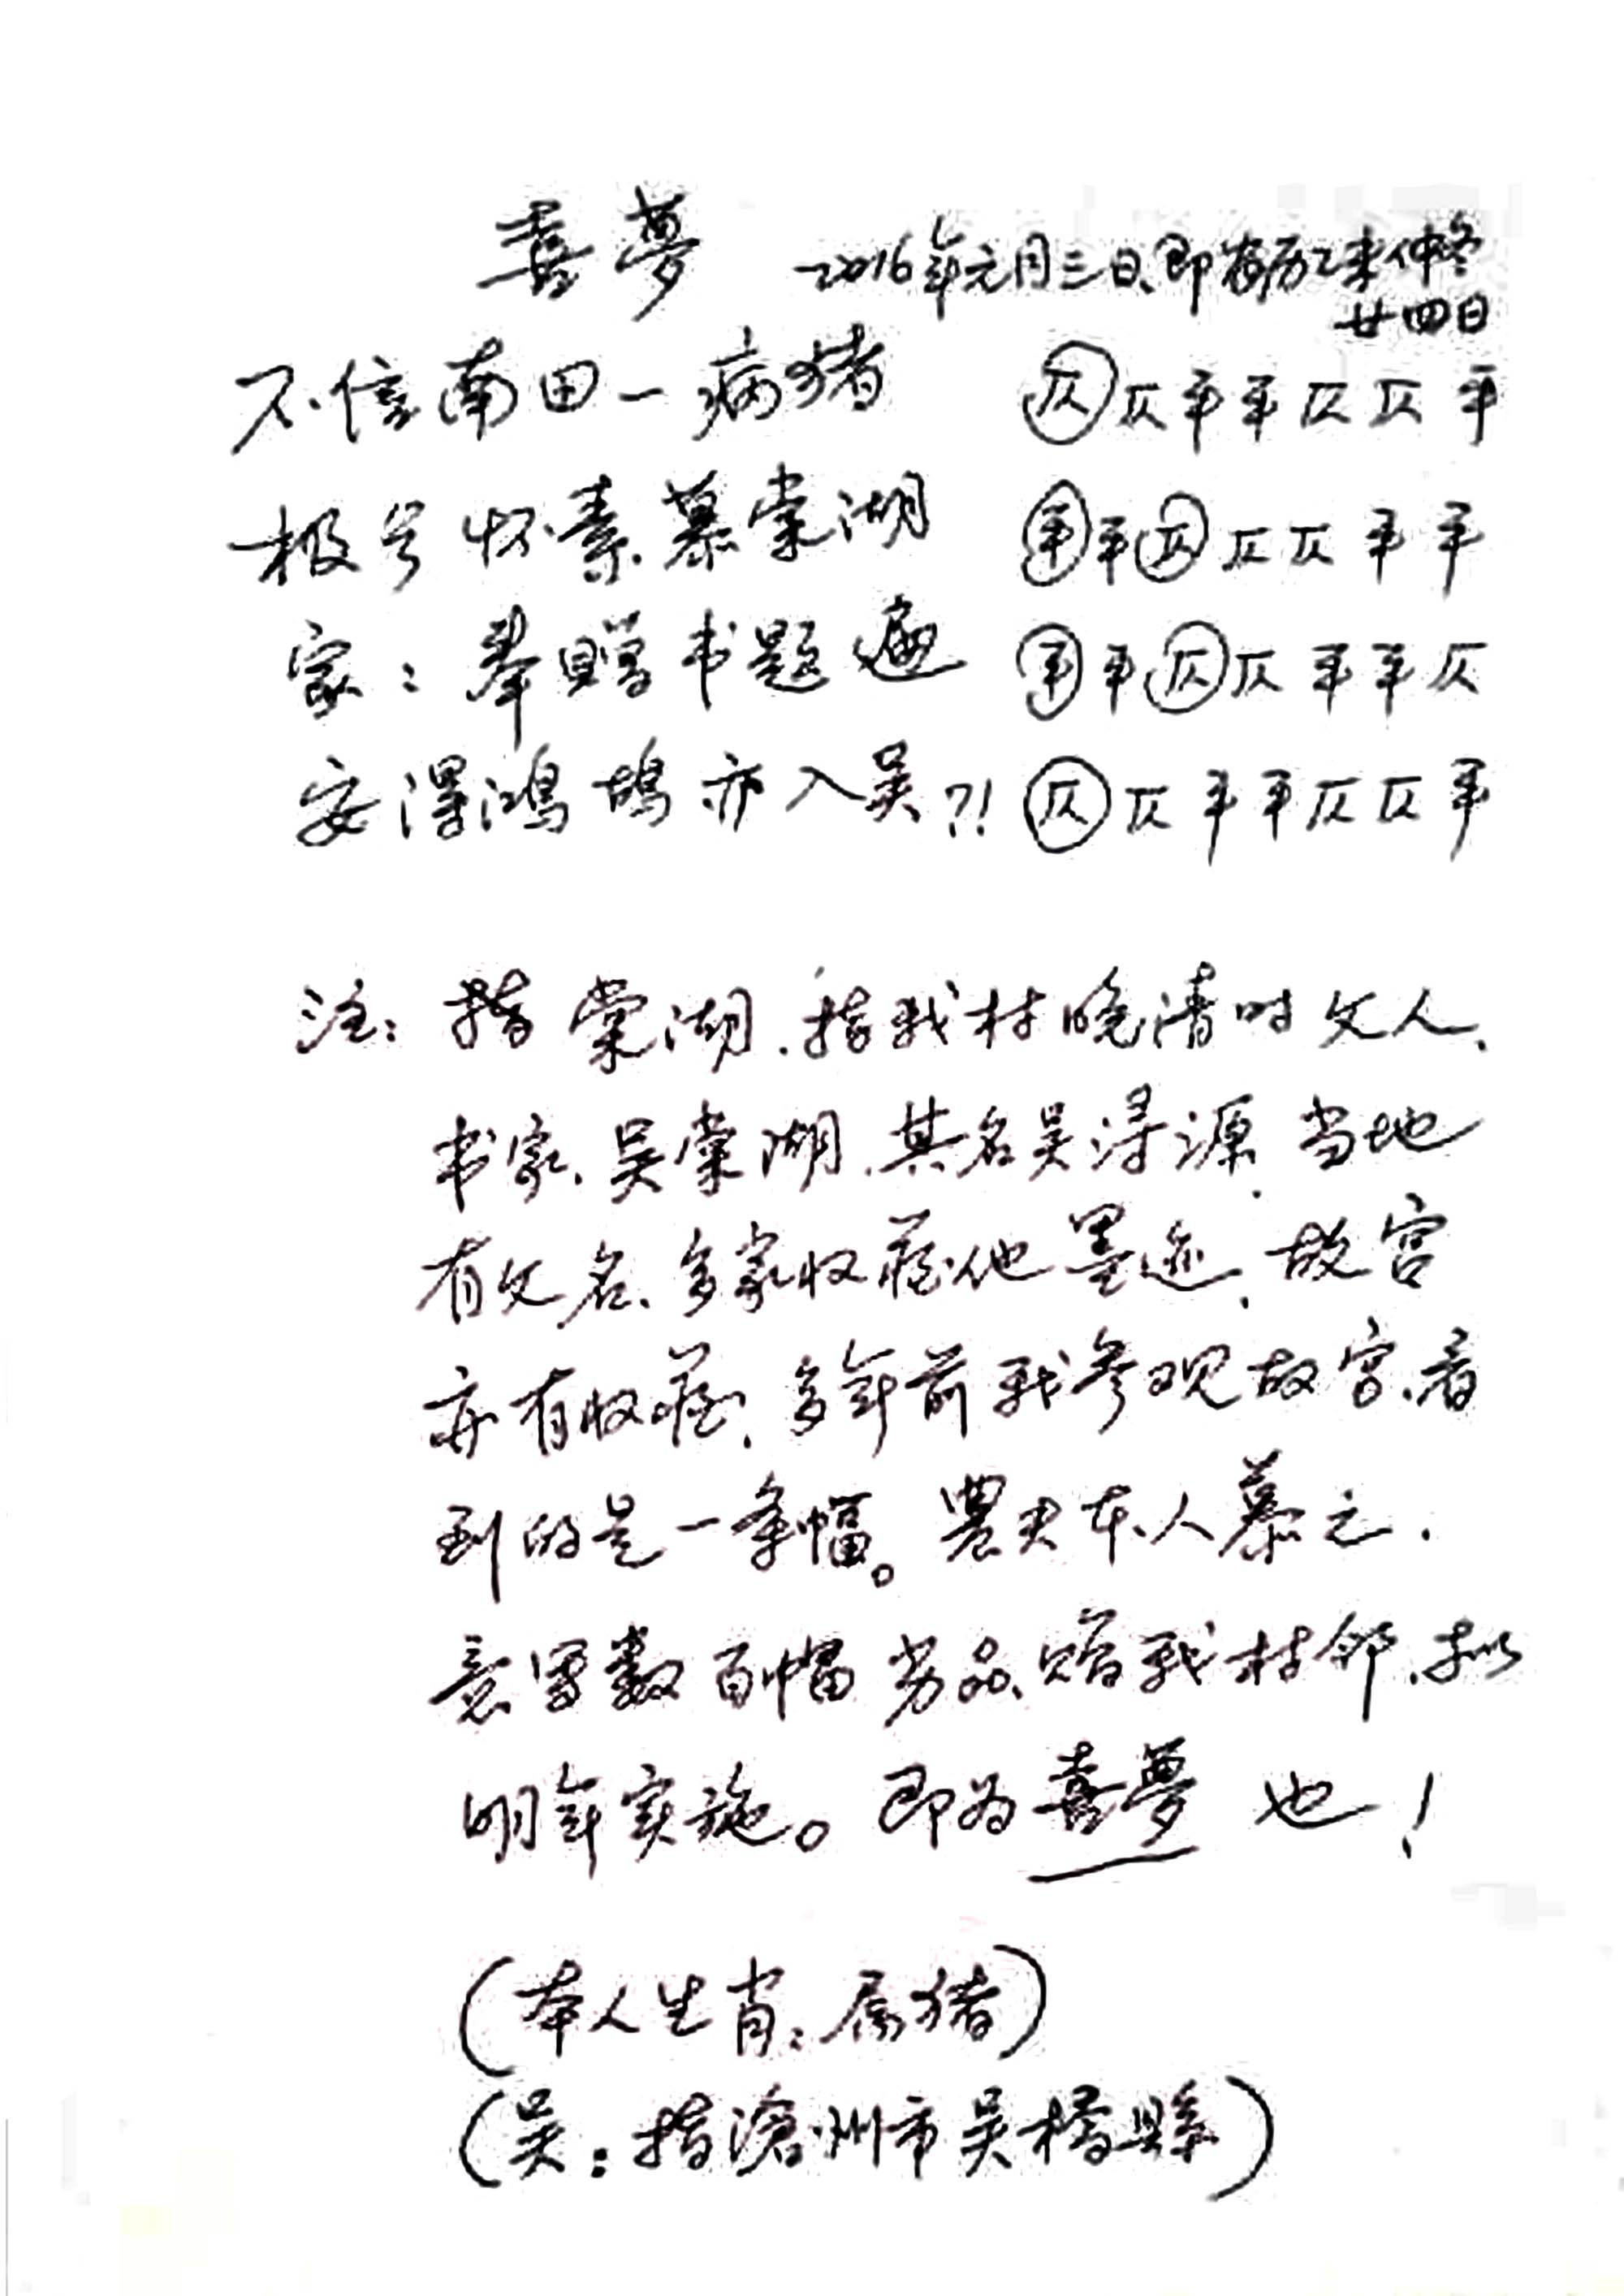 喜夢 2016年元月三日、即农历乙未仲冬
廿四日
不信南田一病猪 仄仄平平仄仄平
极号怀素慕棠湖 平平仄仄仄平平
家:奉赠书题遍 平平仄仄平平仄
安得鸿鹄亦入吴?! 仄仄平平仄仄平
注:指棠湖.指我村晚清时文人、
书家、吴棠湖.其名吴浔源.当地
有文名、多家收藏他墨迹.故宫
亦有收藏.多年前我参观故宫、看
到的是一条幅。農夫本人慕之.
意写数百幅劣品、赠我村邻.拟
明年实施。即为喜夢也!
(本人生肖:属猪)
(吴:指滄州市吴橋縣)